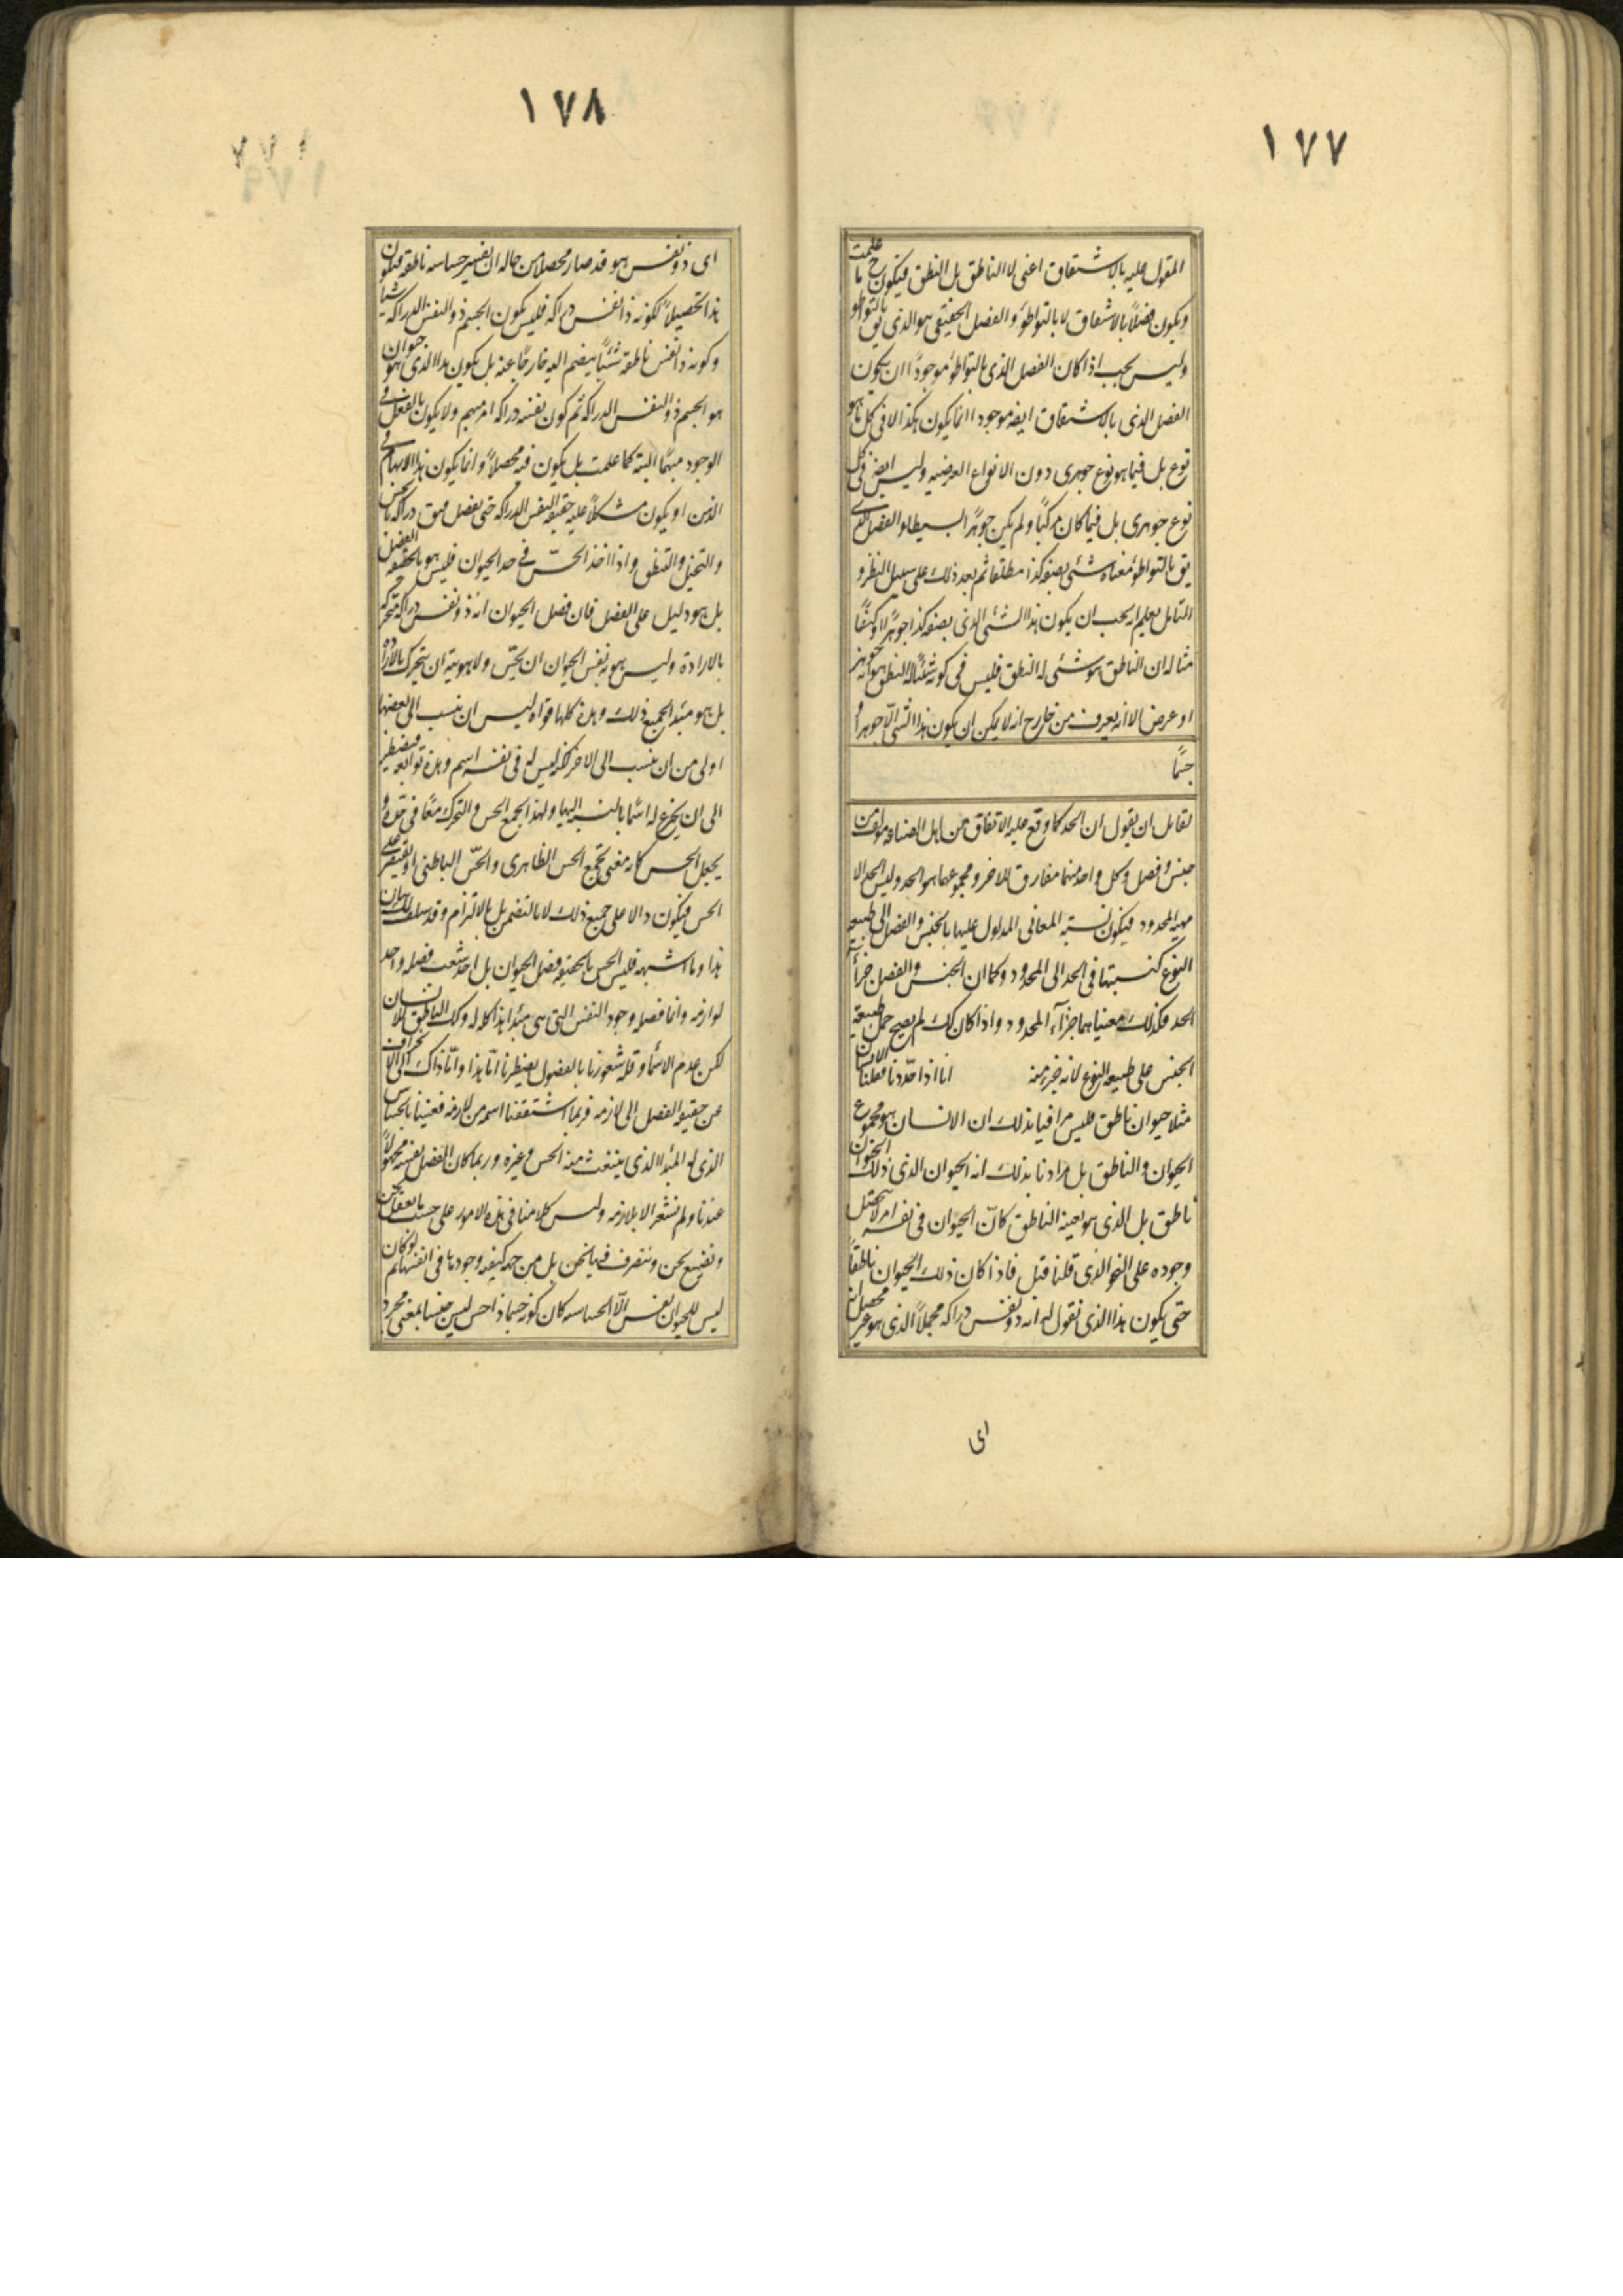 ١٧٧
المقول عليه بالاشتقاق اعنى لا الناطق بل النطق فيكون ح ما علمت
ويكون فصلاً بالاشتقاق لا بالتواطؤ والفصل الحقيقى هو الذى يق بالتواطو
وليس يجب اذا كان الفصل الذى بالتواطؤ موجوداً ان يكون
الفصل الذى بالاشتقاق ايضه موجودا انما يكون هكذا لا فى كل ما هو
نوع بل فيما هو نوع جوهرى دون الانواع العرضيه وليس ايضه فى كل
نوع جوهرى بل فيما كان مركبًا ولم يكن جوهرًا بسيطا والفصل الذى
يق بالتواطؤ معناه شئى بصفه كذا مطلقا ثم بعد ذلك على سبيل النظر و
التامل يعلم انه يجب ان يكون هذا الشئى الذى بصفه كذا جوهرًا او كيفًا
مثاله ان الناطق هو شئى له النطق فليس فى كونه شئيًا له النطق هو انه جوهر
او عرض الا انه يعرف من خارج انه لا يمكن ان يكون هذا الشئ الّا جوهرا او
جسمًا
لقائل ان يقول ان الحد كما وقع عليه الاتفاق من اهل الصناعه مولف من
جنس و فصل وكل واحد منهما مفارق للاخر و مجموعهما هو الحد وليس الحد الا
مهيه المحدود فيكون نسبة المعانى المدلول عليها بالجنس والفصل الى طبيعه
النوع كنسبتها فى الحد الى المحدود وكما ان الجنس والفصل جزآ
الحد فكذلك معنياهما جزآء المحدود واذا كان كك لم يصح حمل طبيعة
الجنس على طبيعه النوع لانه جزء منه انا اذا حدّدنا فقلنا الانسان
مثلا حيوان ناطق فليس مرادنا بذلك ان الانسان هو مجموع
الحيوان والناطق بل مرادنا بذلك انه الحيوان الذى ذلك الحيوان
ناطق بل الذى هو بعينه الناطق كانّ الحيوان فى نفسه امر لا يتحصل
وجوده على النحو الذى قلنا قبل فاذا كان ذلك الحيوان ناطقاً
حتى يكون هذا الذى نقول له انه ذو نفس دراكه مجملاً الذى هو غير محصل انه
اى
١٧٨
اى ذو نفس هو قد صار محصلا من حاله ان نفسه حساسه ناطقه فيكون
هذا تحصيلاً لكونه ذا نفس دراكه فليس يكون الجسم ذو النفس الدراكه شيأ
وكونه ذا نفس ناطقه شئياً ينضم اليه خارجاً عنه بل يكون هذا الذى هو حيوان
هو الجسم ذو النفس الدراكه ثم كون نفسه دراكه امر مبهم ولا يكون بالفعل فى
الوجود مبهمًا البته كما علمت بل يكون فيه محصلاً وانما يكون هذا الابهام فى
الذهن او يكون مشكلاً عليه حقيقه النفس الدراكه حتى يفصل فيق دراكه بالحس
والتخيل والنطق واذا اخذ الحسّ فى حد الحيوان فليس هو بالحقيقه الفصل
بل هو دليل على الفصل فان فصل الحيوان انه ذو نفس دراكه متحركه
بالاراده وليس هويه نفس الحيوان ان يحسّ ولا هويته ان يتحرك بالاراده
بل هو مبئد لجميع ذلك وهذه كلها قواه ليس ان ينسب الى بعضها
اولى من ان ينسب الى الاخر لكنه ليس له فى نفسه اسم وهذه توابعه فيضطر
الى ان يخترع له اسمًا بالنسبه اليها ولهذا نجمع الحس والتحرك معًا فى حدّه و
يجعل الحس كانه معنى يجمع الحس الظاهرى والحسّ الباطنى او يقتصر على
الحس فيكون دالا على جميع ذلك لا بالتضمن بل بالالتزام وقد سلف لك بيان
هذا وما اشبهه فليس الحس بالحقيقه فصل الحيوان بل احد شعب فصله واحد
لوازمه وانما فصله وجود النفس التى هى مبئد هذا كله له وكك الناطق للانسان
لكن عدم الاسماء وقلة شعورنا بالفصول يضطرنا امّا هذا وامّا ذاك الى الانحراف
عن حقيقه الفصل الى لازمه فربما اشتققنا اسمه من لازمه فعنينا بالحساس
الذى له المبئد الذى ينبعث منه الحس وغيره وربما كان الفصل نفسه مجهولاً
عندنا ولم نشعر الا بلازمه وليس كلامنا فى هذه الامور على حسب ما نعقل نحن
ونضع نحن ونتصرف فيها نحن بل من جهه كيفيه وجودها فى انفسها ثم لو كان
ليس للحيوان نفس الّا الحساسه كان كونه جسما ذا حس ليس جنسا بمعنى مجرد